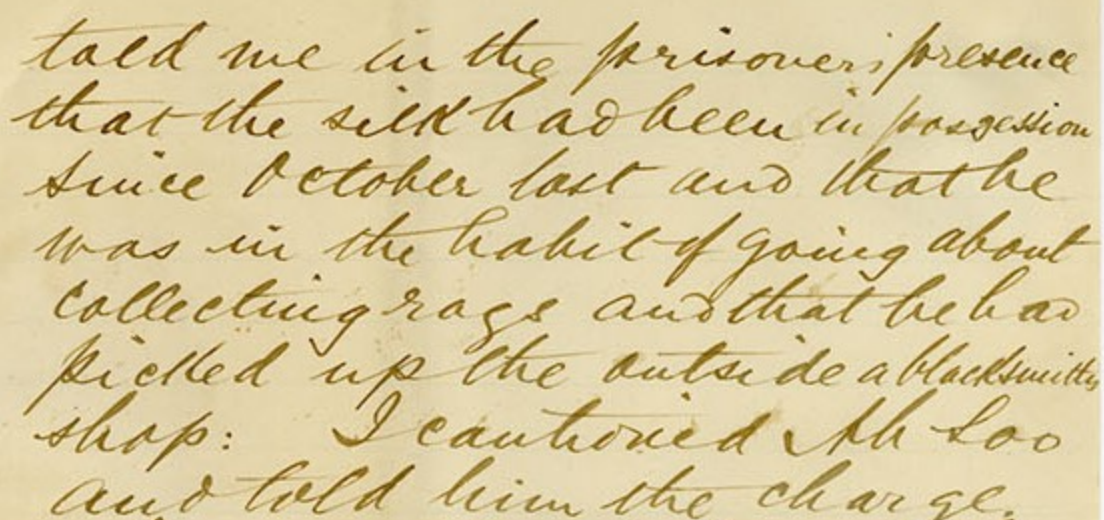 told me in the prisoners presence
that the silk had been in possession
since October last and that he
was in the habit of going about
collecting rags and that he had
picked up the outside a blacksmiths
shop: I cautioned Ah Soo
and told him the charge.